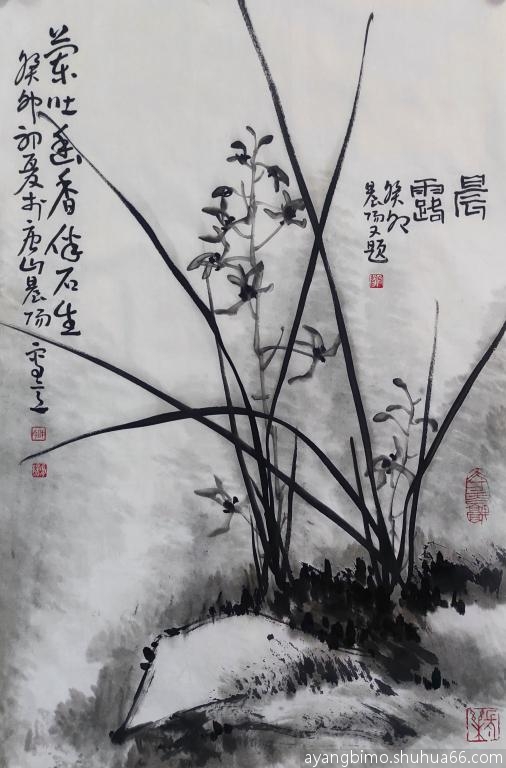 晨
露
癸卯
晨阳又题
兰吐幽香伴石生
癸卯初夏于唐山晨阳
ayangbimo.shuhua66.com